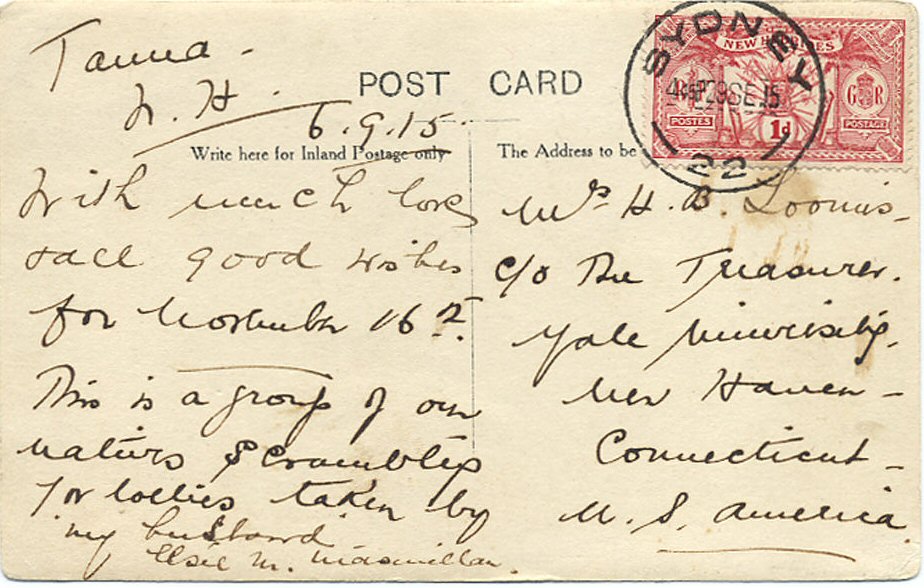 Tanna -
N. H.
6.9.15
POST CARD
Write here for Inland Postage only
The Address to be
SYDNEY
29 SE 15
22
NEW HEBRIDES
G R
POSTES
1d
POSTAGE
With much love
& all good wishes
for November 16th.
This is a group of our
natives scrambling
for lollies taken by
my husband
Elsie M. Macmillan.
Mrs H. B. Loomis -
c/o The Treasurer.
Yale University,
New Haven -
Connecticut -
U. S. America